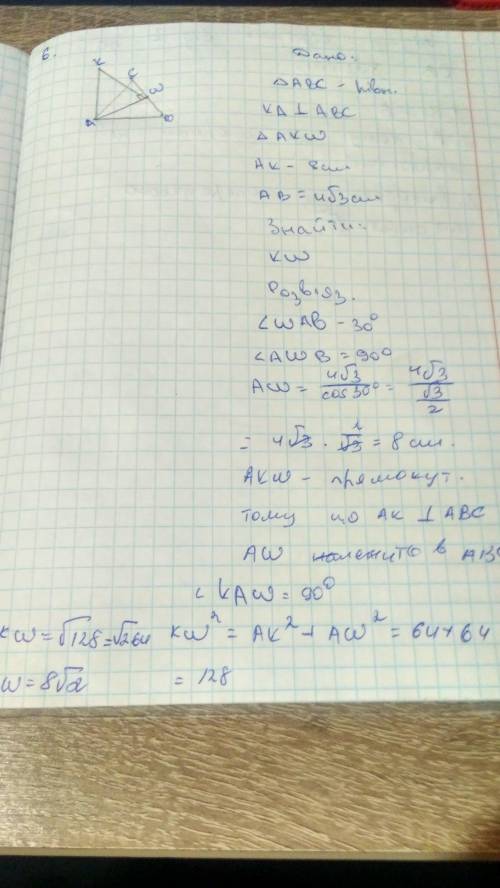 6.
K
C
W
A
B
Дано:
△ABC - рівн.
KA⊥ABC
△AKW
AK - 8 см
AB = 4√3 см
Знайти:
KW
Розв'яз.
∠WAB - 30°
∠AWB = 90°
AW = 4√3 / cos30° = 4√3 / (√3/2)
= 4√3 · 2/√3 = 8 см.
AKW - прямокут.
тому що AK ⊥ ABC
AW належить в ABC
∠KAW = 90°
KW = √128 = √2·64 KW² = AK² + AW² = 64 + 64
W = 8√2 = 128